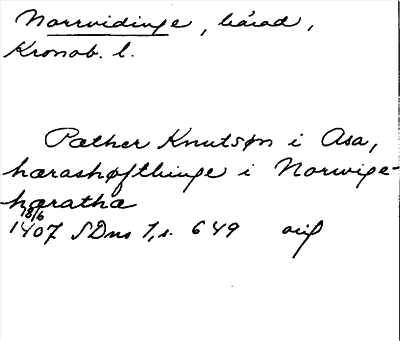 Norrvidinge, härad,
Kronob. l.
Pæther Knutsøn i Asa,
hæræshøfthinge i Norwige-
hæratha
18/6
1407 SDns 1, s. 649 orig